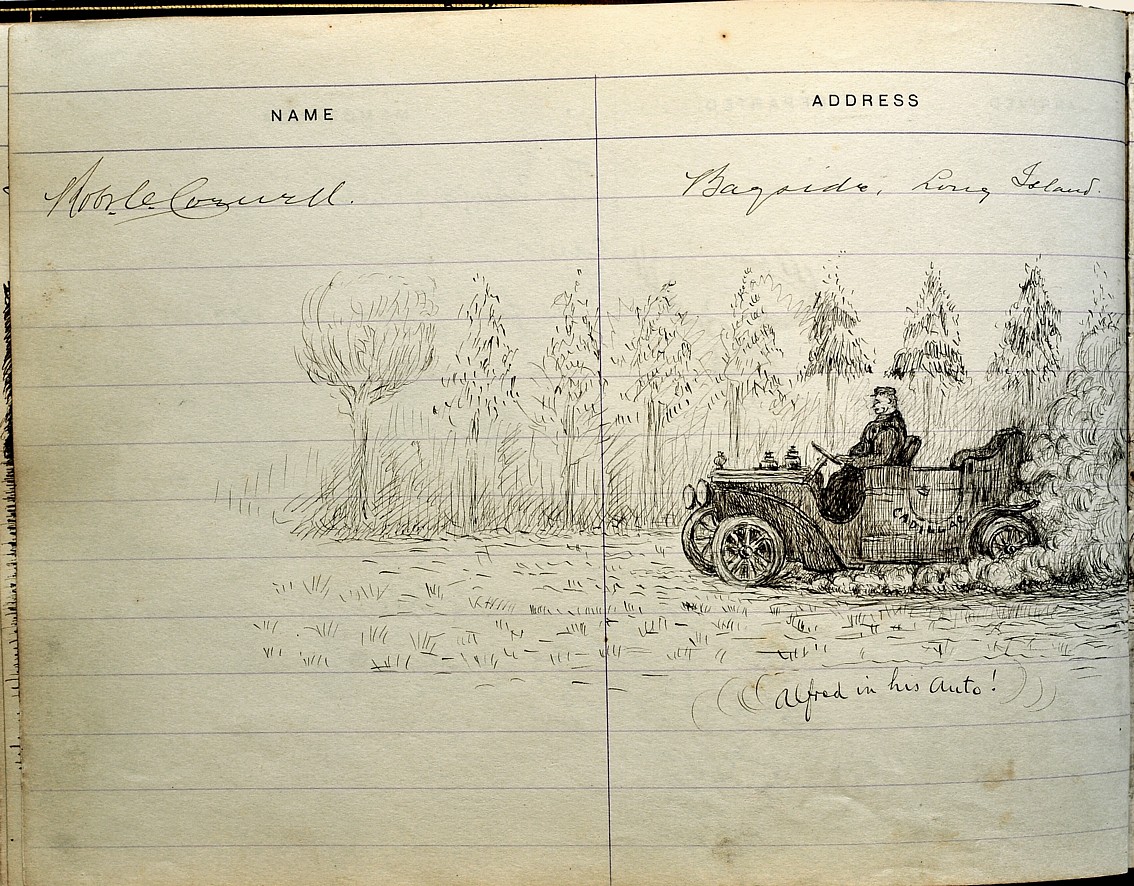 NAME ADDRESS
Bayside, Long Island.
CADILLAC
(((Alfred in his Auto!)))